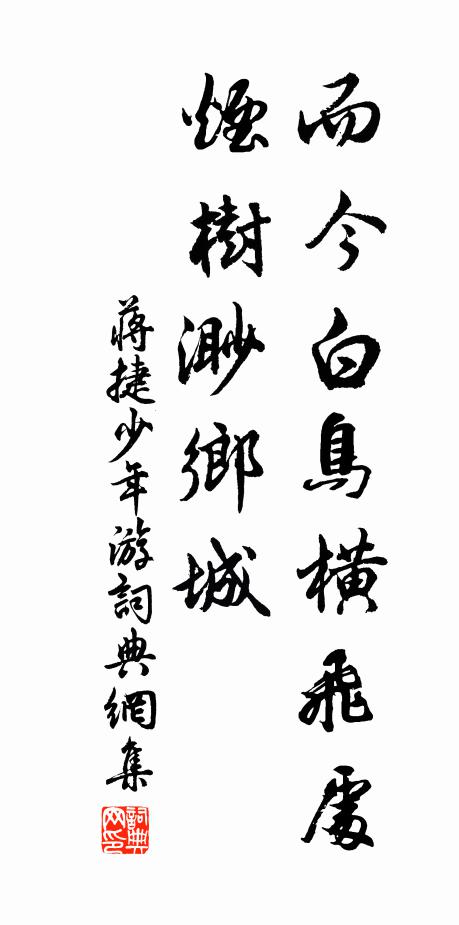 而今白鳥橫飛處
煙樹渺鄉城
蔣捷少年游詞典網集
詞典网印